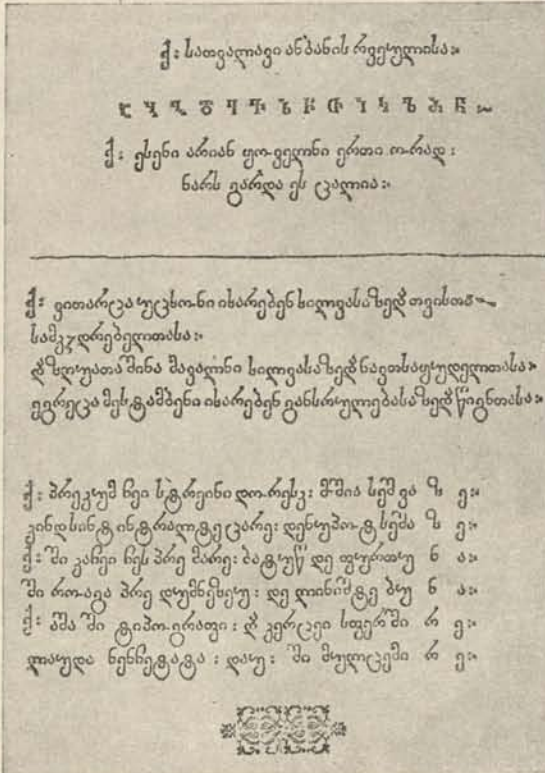 ქ: სათვალავი ანბანის რვეულისა:
Ⴀ Ⴁ Ⴂ Ⴃ Ⴄ Ⴅ Ⴆ Ⴡ Ⴇ Ⴈ Ⴉ Ⴊ Ⴋ Ⴌ
ქ: ესენი არიან ყოველნი ერთი ორად:
ნარს გარდა ეს ცალია:
ქ: ვითარცა უცხონი იხარებენ ხილვასა ზედ თვისთა
სამკჳდრებელთასა:
დ ზღუათა შინა მავალნი ხილვასა ზედ ნავთსაყუდელთასა:
ეგრეცა მესტამბენი იხარებენ განსრულებასა ზედ წიგნთასა:
ქ: პრეკუმ ჩეი სტრეინი დორესკ: მშია სემ ვა ზ ე:
კინდ სინტ ინტრალტე ცარე: დე ნუ პოტ სემა ზ ე:
ქ: ში კაჩეი ჩეს პრე მარე: ბატუწ დე ფურთუ ნ ა:
ში როაგა პრე დუმნეზეუ: დე ლინიშტე ბუ ნ ა:
ქ: აშა ში ტიპოგრაფი: დ კერცეი სფერში რ ე:
ლაუდა ნენჩეტატა: დაუ: ში მულცემი რ ე: